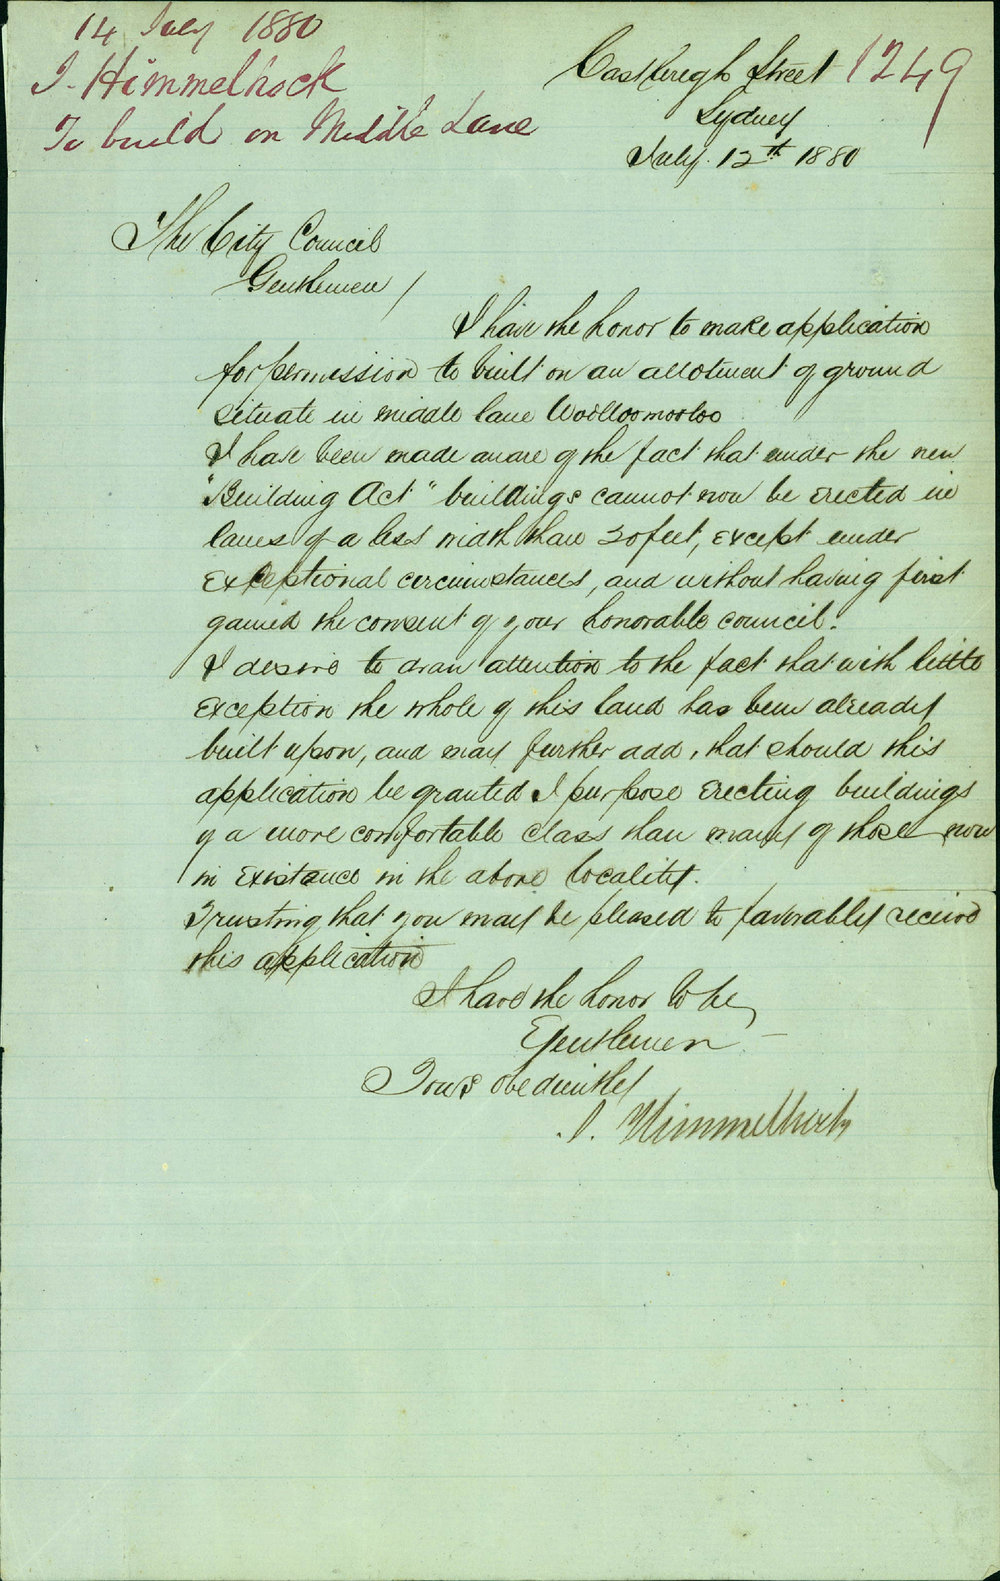 14 July 1880
I. Himmelhock
To build on Middle Lane
1249
Castlereigh Street
Sydney
July. 12th 1880
The City Council
Gentlemen /
I have the honor to make application
for permission to built on an allotment of ground
situate in middle lane Woolloomooloo
I have been made aware of the fact that under the new
"Building Act" buildings cannot now be erected in
lanes of a less width than 20 feet, except under
exceptional circumstances, and without having first
gained the consent of your honorable council.
I desire to draw attention to the fact that with little
exception the whole of this land has been already
built upon, and may further add, that should this
application be granted I purpose erecting buildings
of a more comfortable class than many of those now
in existance in the above locality.
Trusting that you may be pleased to favorably receive
this application
I have the honor to be,
Gentlemen
Yours obediently
I.